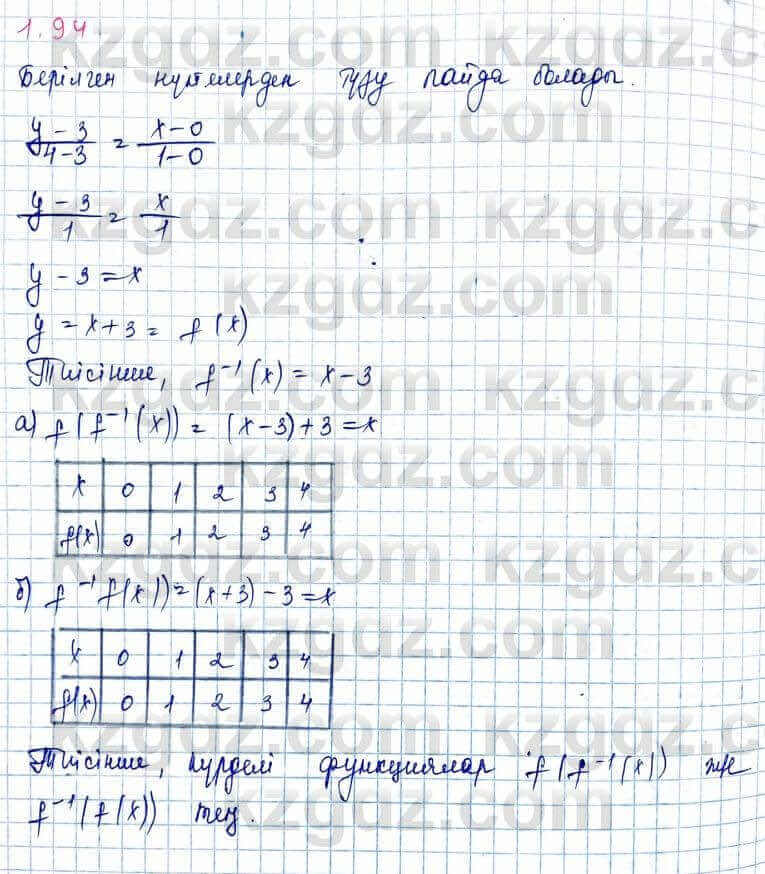 1.94
Берілген нүктелерден түзу пайда болады.
y-3/4-3 = x-0/1-0
y-3/1 = x/1
y-3=x
y=x+3= f(x)
Тиісінше, f⁻¹(x)= x-3
а) f(f⁻¹(x))= (x-3)+3=x
x 0 1 2 3 4
f(x) 0 1 2 3 4
б) f⁻¹f(x))=(x+3)-3=x
x 0 1 2 3 4
f(x) 0 1 2 3 4
Тиісінше, күрделі функциялар f(f⁻¹(x)) же
f⁻¹(f(x)) тең.
kzgdz.com